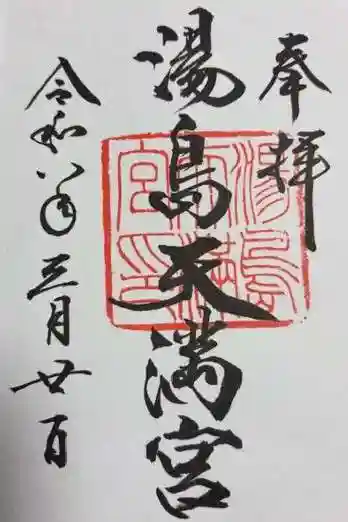 奉拝
湯島天満宮
令和八年三月廿日
湯島天満宮印